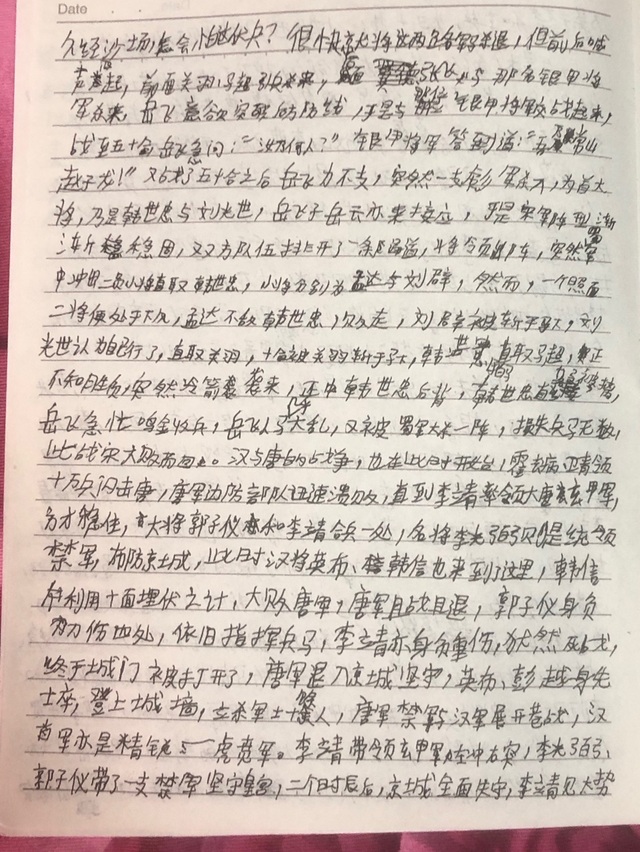 Date
久经沙场,怎会怕这伏兵?但很快岳飞将这两路军杀退,但前后喊
声卷起,前面关羽马超引兵杀来,张飞与那名银甲将
军杀来,岳飞意欲突破的防线,于是与银甲将军战起来,
战至五十合岳飞急问:“汝乃何人?”银甲将军答到道:“吾常山
赵子龙!”又战了五十合之后岳飞力不支,突然一支彪军杀入,为首大
将,乃是韩世忠与刘光世,岳飞子岳云亦来接应,于是宋军阵型渐
渐稳固,双方队伍排开了一条路道,将领出阵,突然蜀军
中冲出二员小将直取韩世忠,小将分别为孟达与刘辟,然而,一个照面
二将便处于下风,孟达不敌韩世忠,欠欠走,刘辟被斩于马下,刘
光世认为自己行了,直取关羽,十合被关羽斩于马下,韩世忠直取马超,
不知胜负,突然冷箭袭来,正中韩世忠后背,韩世忠
岳飞急忙鸣金收兵,岳飞人马大乱,又被蜀军大杀一阵,损失兵马无数,
此战宋大败而回。汉与唐的战争,也在此时开始,霍去病、卫青领
十万兵闪击唐,唐军边防部队迅速溃败,直到李靖率领大唐玄甲军,
方才稳住,大将郭子仪和李靖合兵一处,名将李光弼则是统领
禁军,布防京城,此时汉将英布、韩信也来到了这里,韩信
利用十面埋伏之计,大败唐军,唐军且战且退,郭子仪身负
刀伤四处,依旧指挥兵马,李靖亦身负重伤,犹然死战,
终于城门被打开了,唐军退入京城坚守,英布、彭越身先
士卒,登上城墙,立杀军士数人,唐军禁军与汉军展开巷战,汉
军亦是精锐——虎贲军。李靖带领玄甲军左冲右突,李光弼、
郭子仪带了一支禁军坚守皇宫,二个时辰后,京城全面失守,李靖见大势